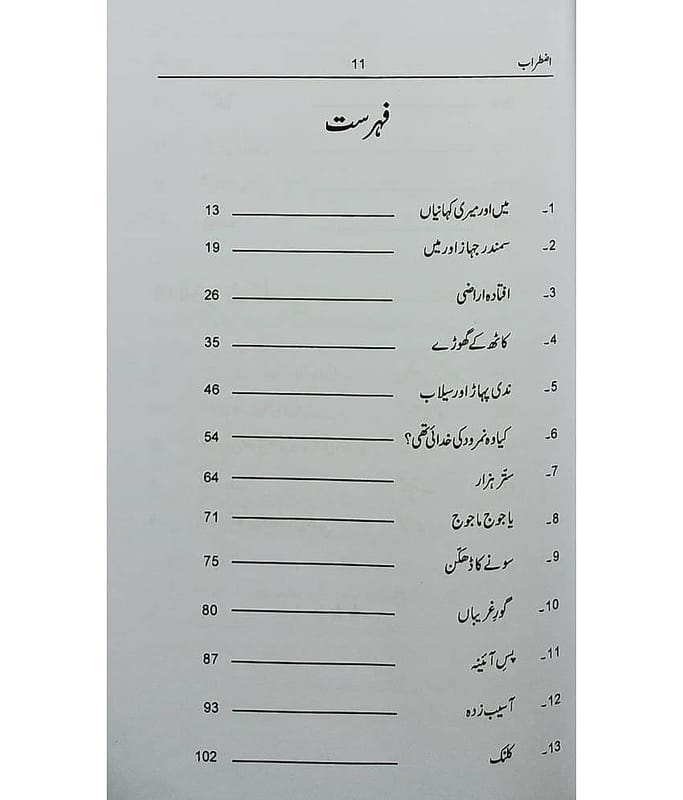 اضطراب 11
فہرست
1۔ میں اور میری کہانیاں 13
2۔ سمندر جہاز اور میں 19
3۔ افتادہ اراضی 26
4۔ کاٹھ کے گھوڑے 35
5۔ ندی پہاڑ اور سیلاب 46
6۔ کیا وہ نمرود کی خدائی تھی؟ 54
7۔ ستّر ہزار 64
8۔ یاجوج ماجوج 71
9۔ سونے کا ڈھکّن 75
10۔ گورِ غریباں 80
11۔ پسِ آئینہ 87
12۔ آسیب زدہ 93
13۔ کلنک 102